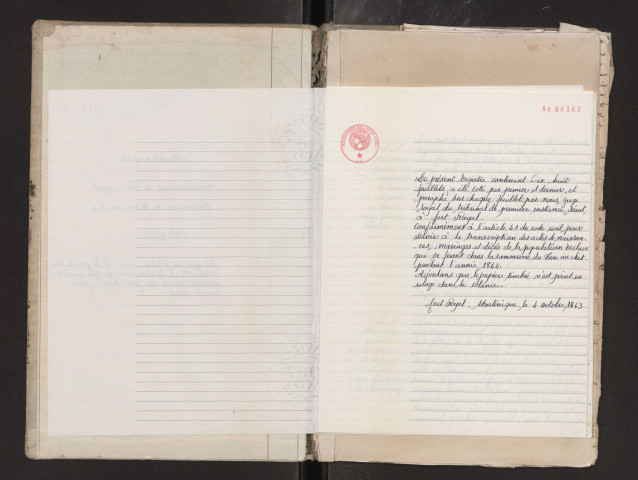 Le présent Registre contenant dix huit
feuillets a été coté par premier et dernier, et
paraphé sur chaque feuillet par nous juge
royal du tribunal de première instance, séant
à fort Royal.
Conformément à l'article 41 du code civil, pour
servir à la transcription des actes de naissan-
ces, mariages et décès de la population esclave
qui se feront dans la commune du
pendant l'année 1844.
Ajoutons que le papier timbré n'est point en
usage dans la colonie.
fort Royal, Martinique le 4 octobre 1843